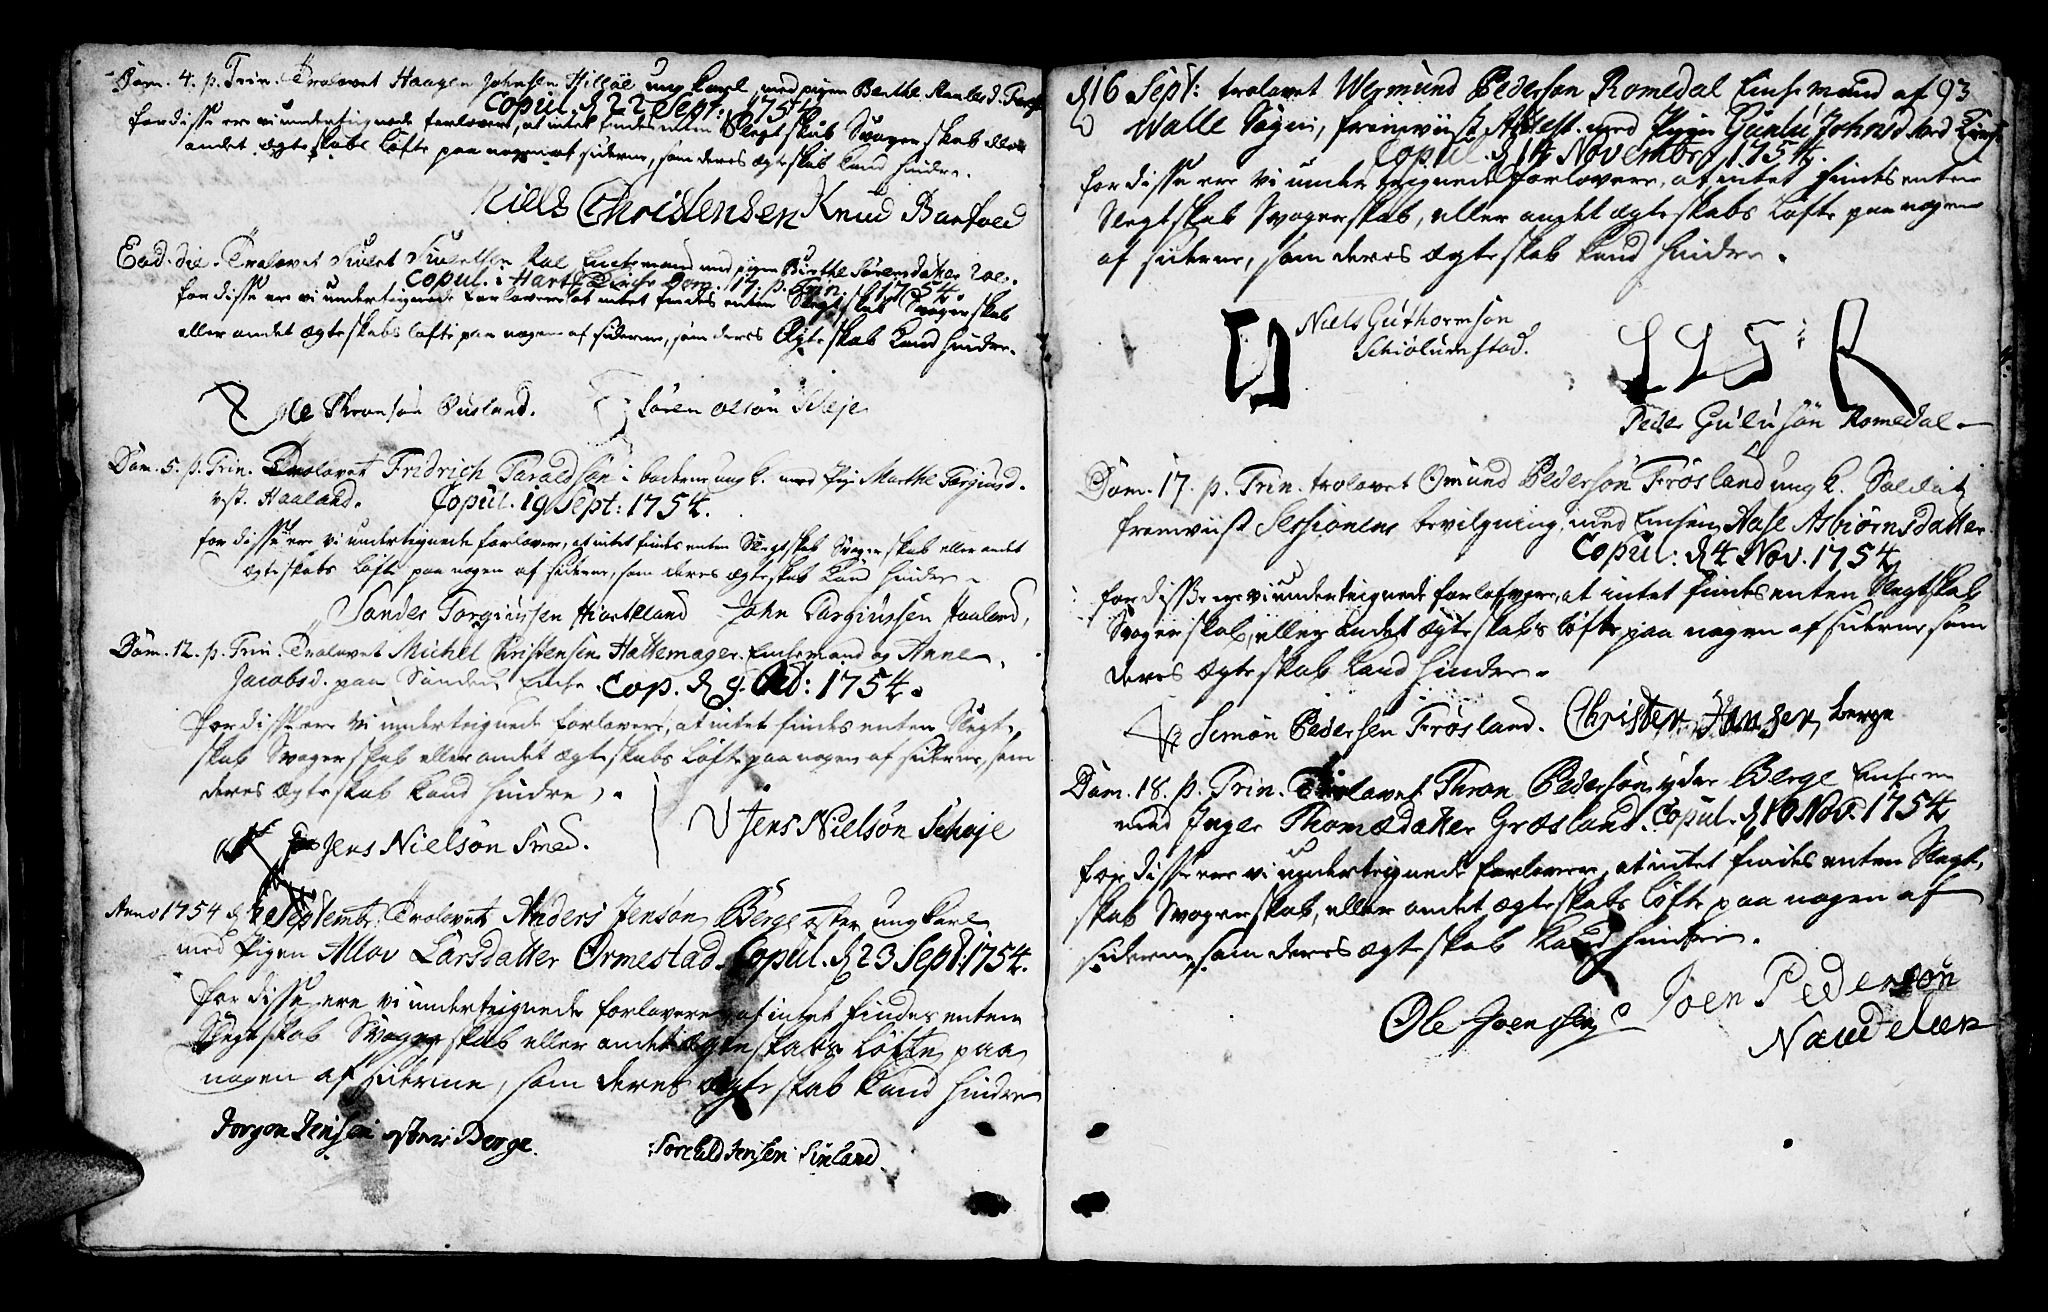 Dom. 4. p. Trin. Trolovet Haagen Johnsen Hilløe ung karl, med pigen Berthe
Copul. d 22 Sept: 1754
for disse ere vi underteignede forlovere, at intet findes enten Slegtskab Svogerskab eller
andet ægteskabs løfte paa nogen af siderne, som deres ægteskab kand hindre.
Niels Christensen Knud Barfoed
Eod. die. Trolovet Siuert Siuertsen Roe Enkemand med pigen Birthe Sørensdatter Roe.
Copul. i Dom. 17. p. Trin. 1754.
for disse ere vi underteignede forlovere at intet findes enten Slegtskab Svogerskab
eller andet ægteskabs løfte paa nogen af siderne, som deres Ægteskab kand hindre.
Ole Thronsøn Øusland. Søren Olsøn
Dom. 5. p. Trin. Trolovet Fridrich Taraldsøn i ung k. med Pig Marthe Torgiusd.
vst. Haaland. Copul. 19 Sept: 1754.
for disse ere vi underteignede forlovere, at intet findes enten Slegtskab Svogerskab eller andet
ægteskabs løfte paa nogen af siderne, som deres ægteskab kand hindre.
Sander Torgiussen Hiorteland John Torgiussen Haaland,
Dom. 12. p. Trin. Trolovet Michel Christensen Hattemager Enkemand og Anne
Jacobsd. paa Sanden Enke. Cop. d 9. 1754.
for disse ere vi underteignede forlovere, at intet findes enten Slegt-
skab Svogerskab eller andet ægteskabs løfte paa nogen af siderne, som
deres Ægteskab kand hindre.
Jens Nielsøn Smed. Jens Nielsøn Scheje
Anno 1754 d Septembr. Trolovet Anders Jensøn Berge øster ung karl
med Pigen Allov Larsdatter Ormestad. Copul. d 23 Sept: 1754.
for disse ere vi underteignede forlovere at intet findes enten
Slegtskab Svogerskab eller andet ægteskabs løfte paa
nogen af siderne, som deres ægteskab kand hindre
Jorgen Jensen øster Berge. Torchild Jensen
d 16 Sept: trolovet Wermund Pedersøn Romedal Enkemand af 93
Walle Sogn, fremviist Attest. med Pigen Gunlu Johnsd.
Copul. d 14 Novembr. 1754.
for disse ere vi underteignede forlovere, at intet findes enten
Slegtskab Svogerskab, eller andet ægteskabs løfte paa nogen
af siderne, som deres ægteskab kand hindre.
Niels Guthormsøn
Schiølumstad.
Peder Gulusøn Romedal
Dom. 17. p. Trin. trolovet Omund Pedersøn Frøsland ung k. Soldat
fremviist Sessionens bevilgning, med Enken Aase Asbiørnsdatter
Copul: d 4 Nov. 1754
for disse ere vi underteignede forlofvere, at intet findes enten Slegtskab
Svogerskab, eller andet ægteskabs løfte paa nogen af siderne som
deres ægteskab kand hindre.
Simon Pedersen Frøsland. Christen Hansen Berge
Dom. 18. p. Trin. Trolovet Thron Pedersøn yder Berge Enkem
med Inger Thomædatter Græsland. Copul. d 16 Nov. 1754
for disse ere vi underteignede forlovere, at intet findes enten Slegt-
skab Svogerskab, eller andet ægteskabs løfte paa nogen af
siderne, som deres ægteskab kand hindre.
Ole Joenssen Joen Pedersøn